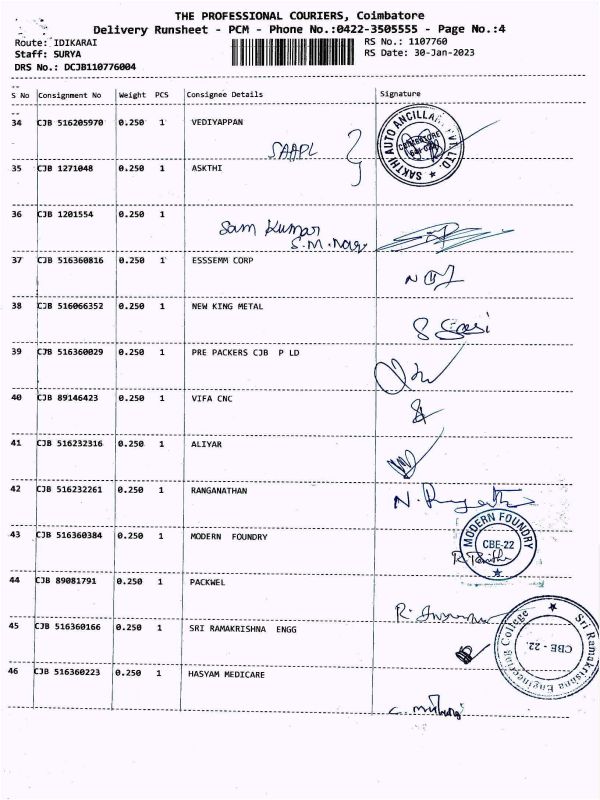 THE PROFESSIONAL COURIERS, Coimbatore
Delivery Runsheet - PCM - Phone No.:0422-3505555 - Page No.:4
Route: IDIKARAI RS No.: 1107760
Staff: SURYA RS Date: 30-Jan-2023
DRS No.: DCJB110776004
S No Consignment No Weight PCS Consignee Details Signature
34 CJB 516205970 0.250 1 VEDIYAPPAN
SAAPL
SAKTHI AUTO ANCILLARY PVT. LTD. COIMBATORE
35 CJB 1271048 0.250 1 ASKTHI
36 CJB 1201554 0.250 1
Sam Kumar
S.M. Nagar
37 CJB 516360816 0.250 1 ESSSEMM CORP
38 CJB 516066352 0.250 1 NEW KING METAL
39 CJB 516360029 0.250 1 PRE PACKERS CJB P LD
40 CJB 89146423 0.250 1 VIFA CNC
41 CJB 516232316 0.250 1 ALIYAR
42 CJB 516232261 0.250 1 RANGANATHAN
43 CJB 516360384 0.250 1 MODERN FOUNDRY
MODERN FOUNDRY CBE-22
44 CJB 89081791 0.250 1 PACKWEL
45 CJB 516360166 0.250 1 SRI RAMAKRISHNA ENGG
Sri Ramakrishna Engineering College CBE - 22.
46 CJB 516360223 0.250 1 HASYAM MEDICARE